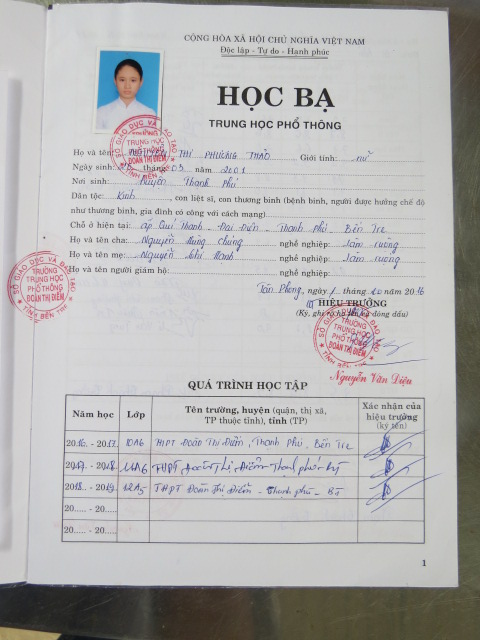 CỘNG HÒA XÃ HỘI CHỦ NGHĨA VIỆT NAM
Độc lập - Tự do - Hạnh phúc
HỌC BẠ
TRUNG HỌC PHỔ THÔNG
Họ và tên: NGUYỄN THỊ PHƯƠNG THẢO Giới tính: nữ
Ngày sinh: tháng 03 năm 2001
Nơi sinh: Huyện Thạnh Phú
Dân tộc: Kinh, con liệt sĩ, con thương binh (bệnh binh, người được hưởng chế độ
như thương binh, gia đình có công với cách mạng)
Chỗ ở hiện tại: ấp Quí Thạnh - Đại Điền - Thạnh Phú - Bến Tre
Họ và tên cha: Nguyễn Hùng nghề nghiệp: Làm ruộng
Họ và tên mẹ: Nguyễn Thị Hạnh nghề nghiệp: Làm ruộng
Họ và tên người giám hộ: nghề nghiệp:
Tân Phong, ngày tháng 10 năm 2016
HIỆU TRƯỞNG
(Ký, ghi rõ họ tên và đóng dấu)
SỞ GIÁO DỤC VÀ ĐÀO TẠO
TRƯỜNG
TRUNG HỌC
PHỔ THÔNG
ĐOÀN THỊ ĐIỂM
TỈNH BẾN TRE
Nguyễn Văn Diệu
QUÁ TRÌNH HỌC TẬP
Năm học Lớp Tên trường, huyện (quận, thị xã, TP thuộc tỉnh), tỉnh (TP) Xác nhận của hiệu trưởng (ký tên)
2016. - 2017. 10A6 THPT Đoàn Thị Điểm, Thạnh Phú, Bến Tre
2017. - 2018. 11A6 THPT Đoàn Thị Điểm Thạnh phú
2018. - 2019. 12A5 THPT Đoàn Thị Điểm - Thạnh phú - BT
20..... - 20.....
20..... - 20.....
1